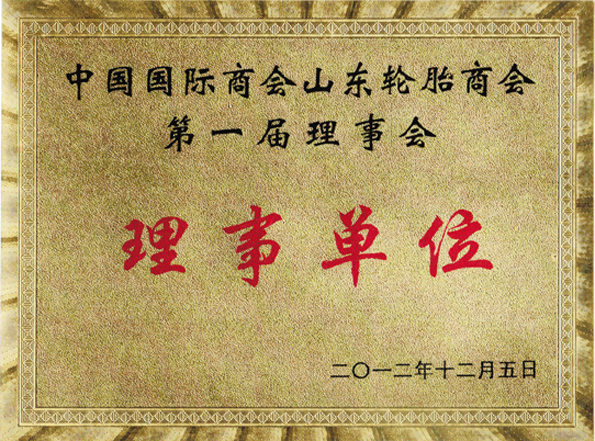 中国国际商会山东轮胎商会
第一届理事会
理事单位
二〇一二年十二月五日